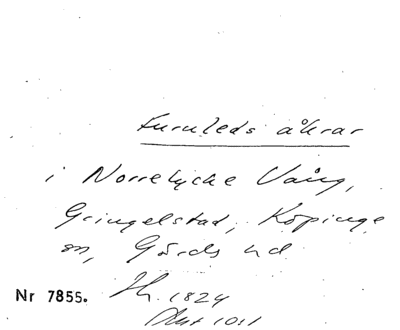 Furuleds åkrar
i Norrelycke Vång,
Gringelstad, Köpinge
sn, Gärds hd
Nr 7855. Jh. 1824
Akt 1011